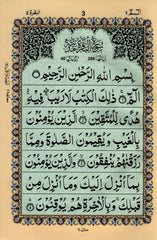 البقرة ٢
3
الٓمّٓ ١
سُوْرَةُ الْبَقَرَةِ
بِسْمِ اللهِ الرَّحْمٰنِ الرَّحِيْمِ
الٓمّٓ ۚ ذٰلِكَ الْكِتٰبُ لَا رَيْبَ ۛ فِيْهِ ۛ
هُدًى لِّلْمُتَّقِيْنَ ۙ الَّذِيْنَ يُؤْمِنُوْنَ
بِالْغَيْبِ وَيُقِيْمُوْنَ الصَّلٰوةَ وَمِمَّا
رَزَقْنٰهُمْ يُنْفِقُوْنَ ۙ وَالَّذِيْنَ يُؤْمِنُوْنَ
بِمَآ اُنْزِلَ اِلَيْكَ وَمَآ اُنْزِلَ مِنْ
قَبْلِكَ ۚ وَبِالْاٰخِرَةِ هُمْ يُوْقِنُوْنَ